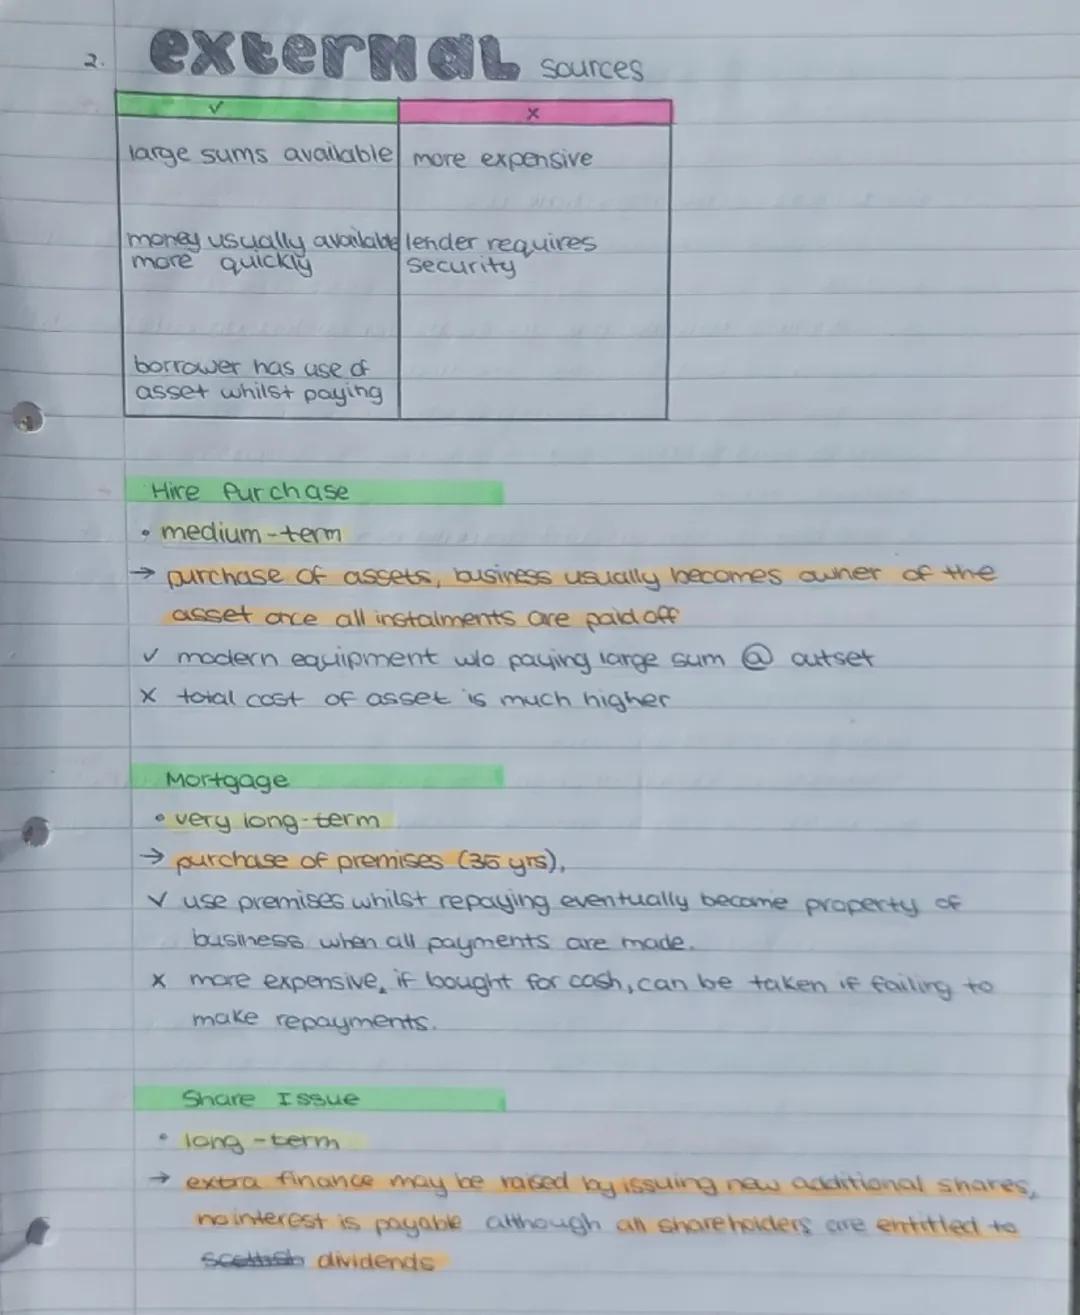 2. external sources
✓ x
large sums available more expensive
money usually available lender requires
more quickly security
borrower has use of
asset whilst paying
Hire Purchase
• medium-term
→ purchase of assets, business usually becomes owner of the
asset once all instalments are paid off
✓ modern equipment w/o paying large sum @ outset
x total cost of asset is much higher
Mortgage
• very long-term
→ purchase of premises (35 yrs),
✓ use premises whilst repaying eventually become property of
business when all payments are made.
x more expensive, if bought for cash, can be taken if failing to
make repayments.
Share Issue
• long-term
→ extra finance may be raised by issuing new additional shares,
no interest is payable although all shareholders are entitled to
dividends